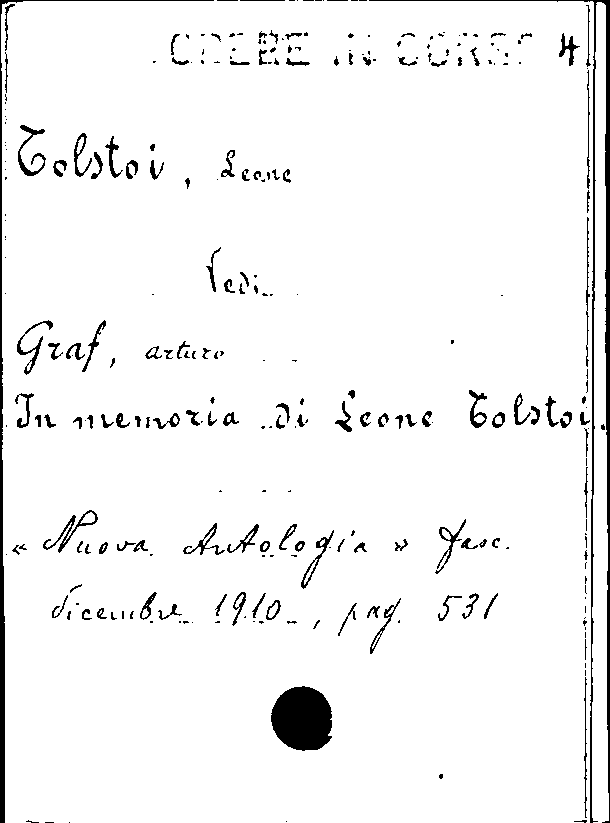 OPERE IN CORSO 4
Tolstoi, Leone
Vedi
Graf, arturo
In memoria di Leone Tolstoi.
« Nuova Antologia » fasc.
dicembre 1910, pag. 531